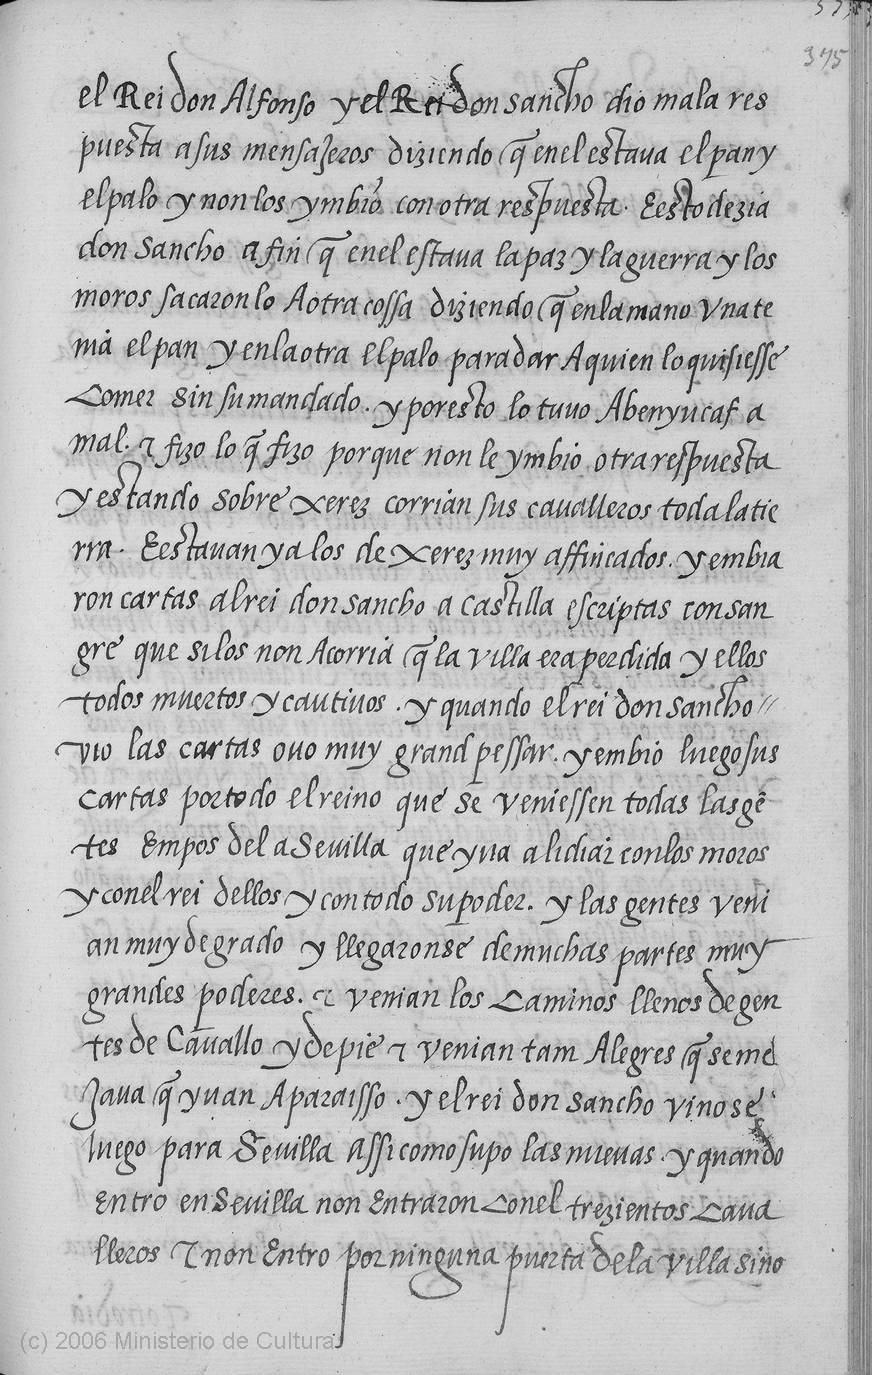 375
el Rei don Alfonso y el Rei don sancho dio mala res
puesta a sus mensajeros diziendo q̃ en el estava el pan y
el palo y non los ymbio con otra respuesta. E esto dezia
don Sancho a fin q̃ en el estava la paz y la guerra y los
moros sacaron lo A otra cossa diziendo q̃ en la mano Vna te
nia el pan y en la otra El palo para dar A quien lo quisiesse
Comer sin su mandado. y por esto lo tuvo Abenyucaf a
mal. τ fizo lo q̃ fizo porque non le ymbio otra respuesta
y estando sobre Xerez corrian sus cavalleros toda la tie
rra. E estavan ya los de Xerez muy affincados. y embia
ron cartas al rei don sancho a Castilla escriptas con san
gre que si los non Acorria q̃ la villa era perdida y ellos
todos muertos y cautivos. y quando el rei don sancho //
vio las cartas ouo muy grand pessar. y embio luego sus
cartas por todo el reino que se veniessen todas las gẽ
tes Empos del a Sevilla que yva a lidiar con los moros
y con el rei dellos y con todo su poder. y las gentes veni
an muy de grado y llegaronse de muchas partes muy
grandes poderes. τ venian los Caminos llenos de gen
tes de Cavallo y de pie τ venian tam Alegres q̃ seme
Java q̃ yvan A paraisso. y el rei don sancho vinose
luego para Sevilla Assi como supo las nuevas. y quando
Entro en Sevilla non Entraron Con el trezientos Cava
lleros τ non Entro por ninguna puerta de la villa sino
(c) 2006 Ministerio de Cultura